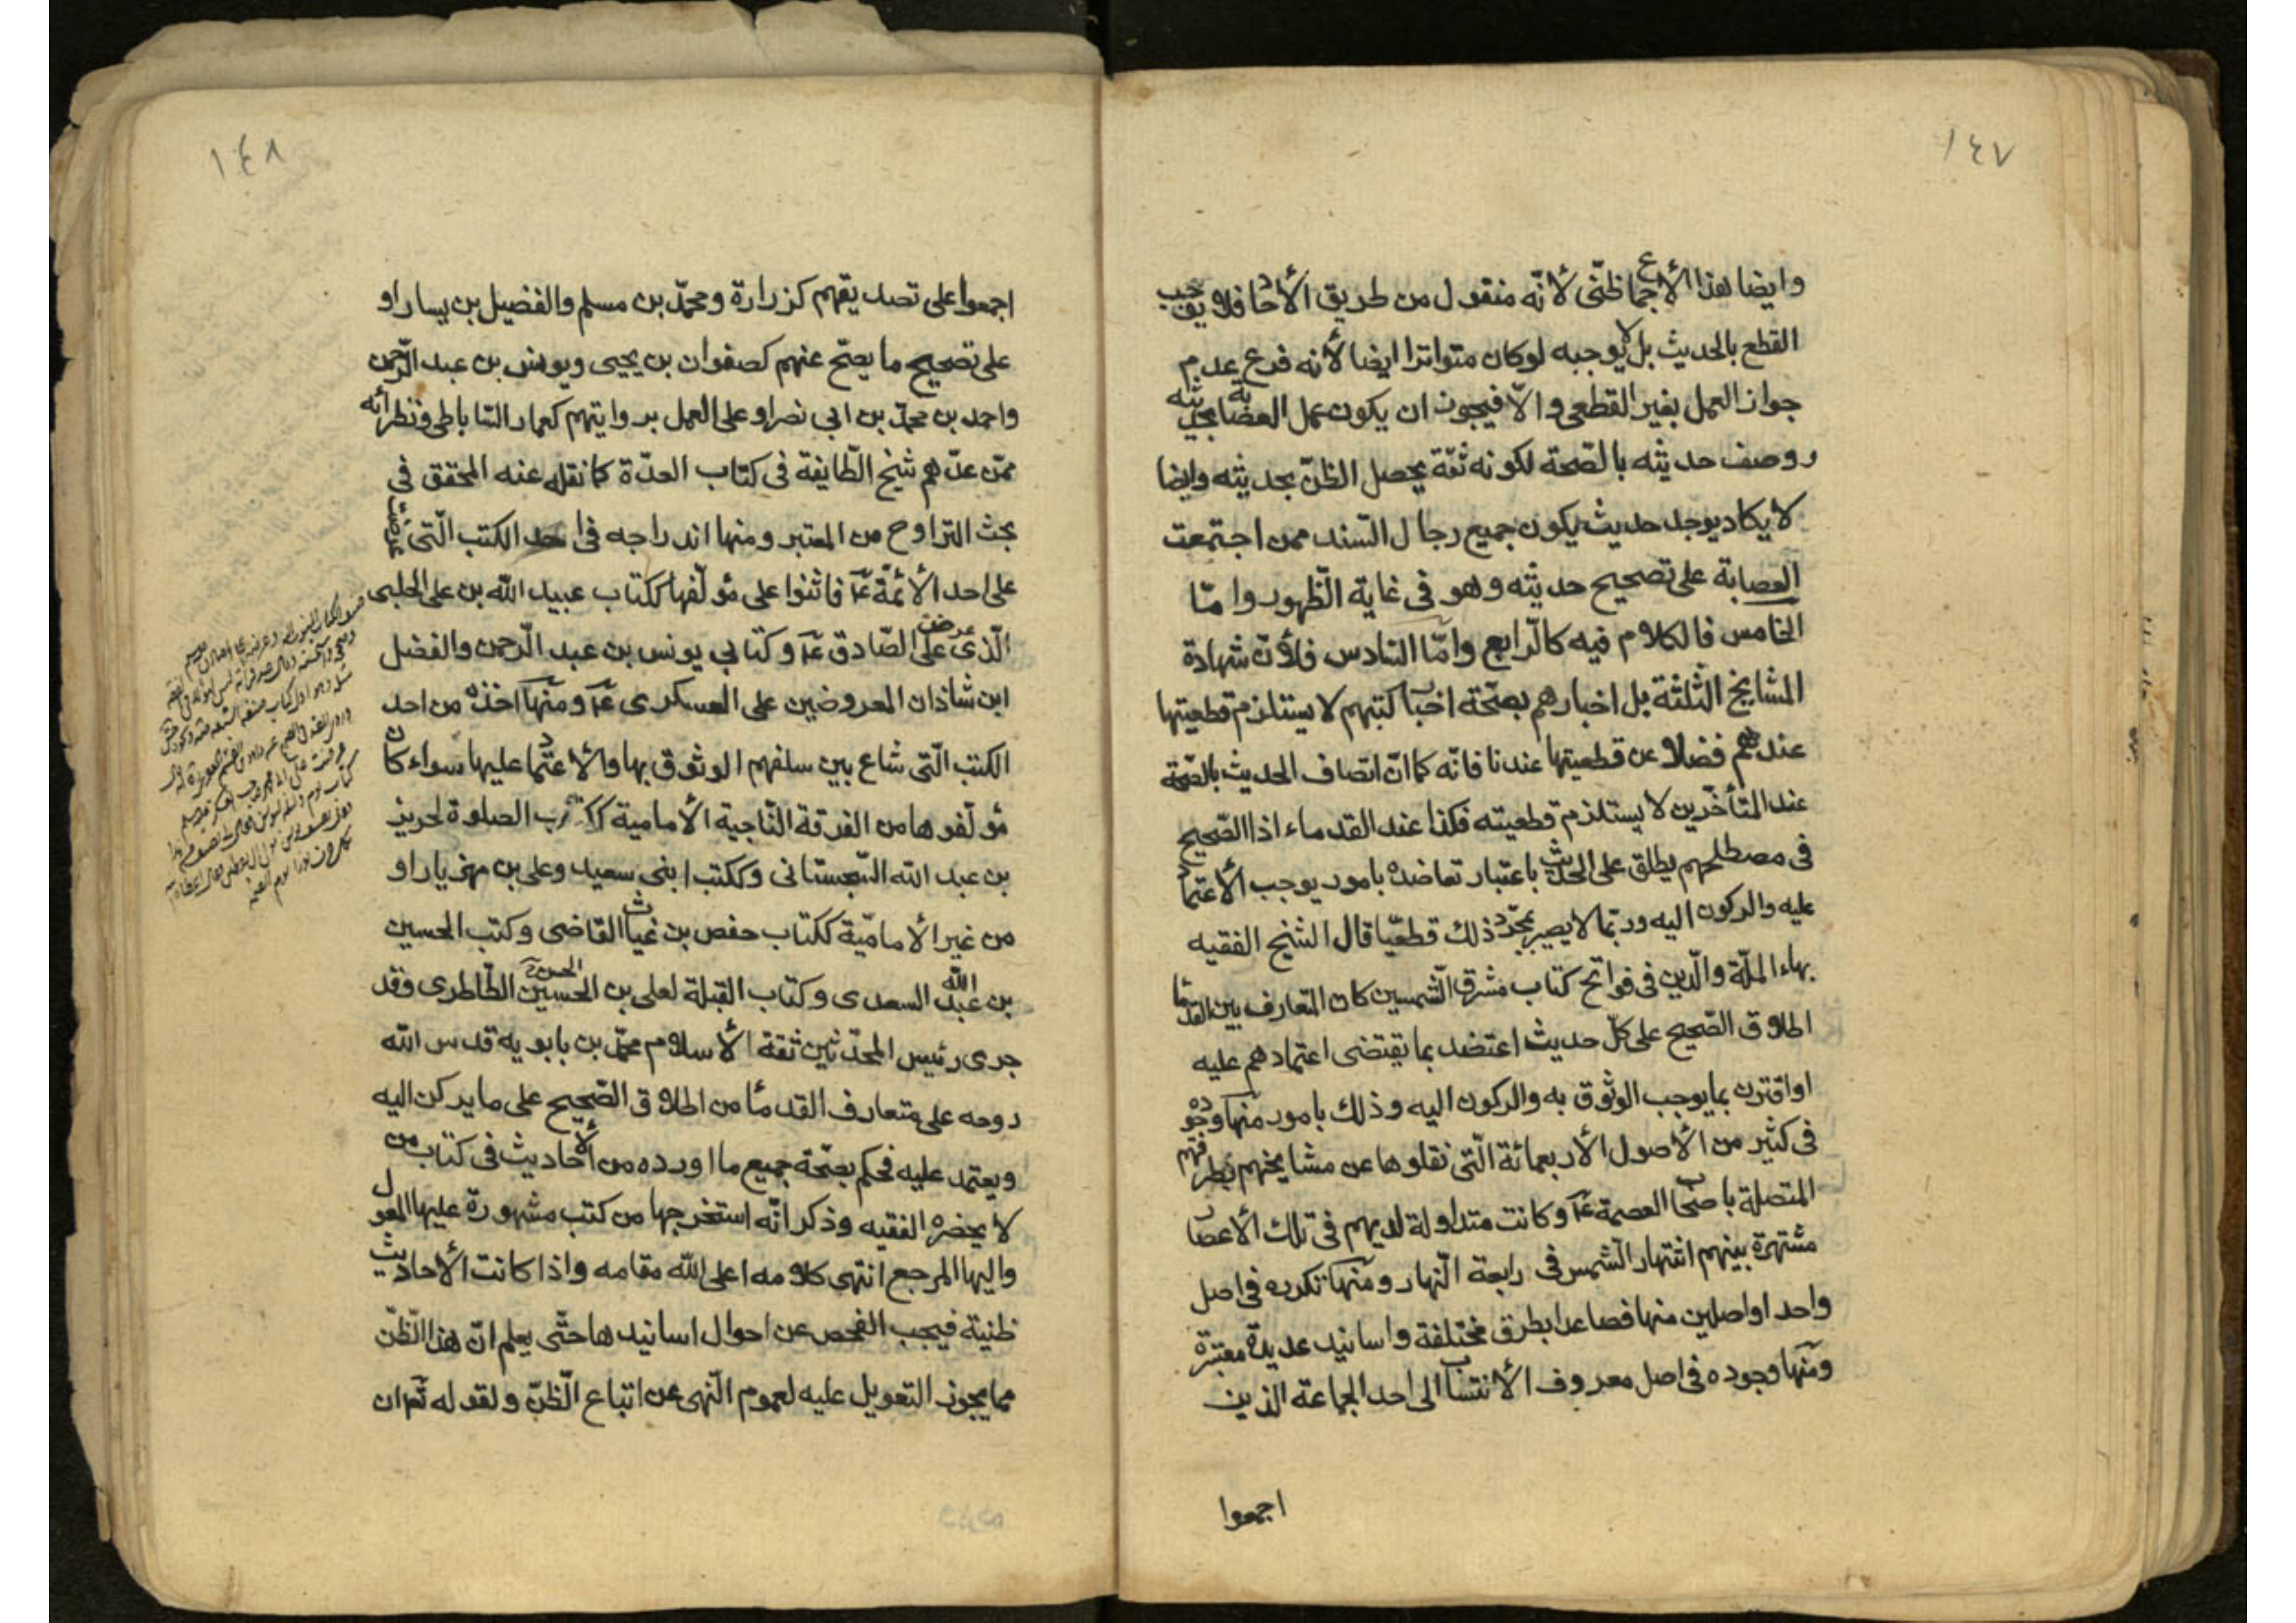 ١٤٧
وايضا هذا الأجماع ظنّى لأنّه منقول من طريق الأحاد فلا يوجب
القطع بالحديث بل لا يوجبه لو كان متواترا ايضا لأنه فرع عدم
جواز العمل بغير القطعى والّا فيجوز ان يكون عمل العصابة بحديثه
ووصف حديثه بالصّحة لكونه ثقة يحصل الظنّ بحديثه وايضا
لا يكاد يوجد حديث يكون جميع رجال السّند ممن اجتمعت
العصابة على تصحيح حديثه وهو فى غاية الظّهور وامّا
الخامس فالكلام فيه كالرّابع وامّا السّادس فلأنّ شهادة
المشايخ الثّلثة بل اخبارهم بصحّة اخبار كتبهم لا يستلزم قطعيتها
عندهم فضلا عن قطعيتها عندنا فانّه كما انّ اتصاف الحديث بالصّحة
عند المتأخّرين لا يستلزم قطعيته فكذا عند القدماء اذا الصّحيح
فى مصطلحهم يطلق على الحديث باعتبار تعاضده بامور يوجب الأعتماد
عليه والركون اليه وربّما لا يصير بمجّرد ذلك قطعيّا قال الشيخ الفقيه
بهاء الملّة والّدين فى فواتح كتاب مشرق الشّمسين كان المتعارف بين القدما
اطلاق الصّحيح على كلّ حديث اعتضد بما يقتضى اعتمادهم عليه
او اقترن بما يوجب الوثوق به والركون اليه وذلك بامور منها وجوده
فى كثير من الأصول الأربعمائة الّتى نقلوها عن مشايخهم بطرقهم
المتصلة باصحاب العصمة عَ وكانت متداولة لديهم فى تلك الأعصار
مشتهرة بينهم اشتهار الشّمس فى رابعة النّهار ومنها تكرره فى اصل
واحد او اصلين منها فصاعدا بطرق مختلفة واسانيد عديدة معتبرة
ومنها وجوده فى اصل معروف الأنتساب الى احد الجماعة الذين
اجمعوا
١٤٨
اجمعوا على تصديقهم كزرارة ومحمّد بن مسلم والفضيل بن يسار او
على تصحيح ما يصحّ عنهم كصفوان بن يحيى ويونس بن عبد الرّحمن
واحمد بن محمّد بن ابى نصر او على العمل بروايتهم كعمار السّاباطى ونظرائه
ممّن عدّهم شيخ الطّايفة فى كتاب العدّة كما نقله عنه المحقق فى
بحث التراوح من المعتبر ومنها اندراجه فى احد الكتب الّتى عرضت
على احد الأئمّة عَ فاثنوا على مؤلّفها ككتاب عبيد الله بن على الحلبى
الّذى عرض على الصّادق عَ وكتابى يونس بن عبد الرّحمن والفضل
ابن شاذان المعروضين على العسكرى عَ ومنها اخذه من احد
الكتب الّتى شاع بين سلفهم الوثوق بها والأعتماد عليها سواء كان
مؤلّفوها من الفرقة النّاجية الأمامية ككتاب الصلوة لحريز
بن عبد الله السّجستانى وككتب ابنى سعيد وعلى بن مهزيار او
من غير الأماميّة ككتاب حفص بن غياث القاضى وكتب الحسين
بن عبد الله السعدى وكتاب القبلة لعلى بن الحسين الحسن الطّاطرى وقد
جرى رئيس المحدّثين ثقة الأسلام محمّد بن بابويه قدس الله
روحه على متعارف القدمآ من اطلاق الصّحيح على ما يركن اليه
ويعتمد عليه فحكم بصحّة جميع ما اورده من الأحاديث فى كتاب من
لا يحضره الفقيه وذكر انّه استخرجها من كتب مشهورة عليها المعول
واليها المرجع انتهى كلامه اعلى الله مقامه واذا كانت الأحاديث
ظنية فيجب الفحص عن احوال اسانيدها حتّى يعلم انّ هذا الظّن
مما يجوز التعويل عليه لعموم النّهى عن اتباع الظّن ولقوله تعَ ان